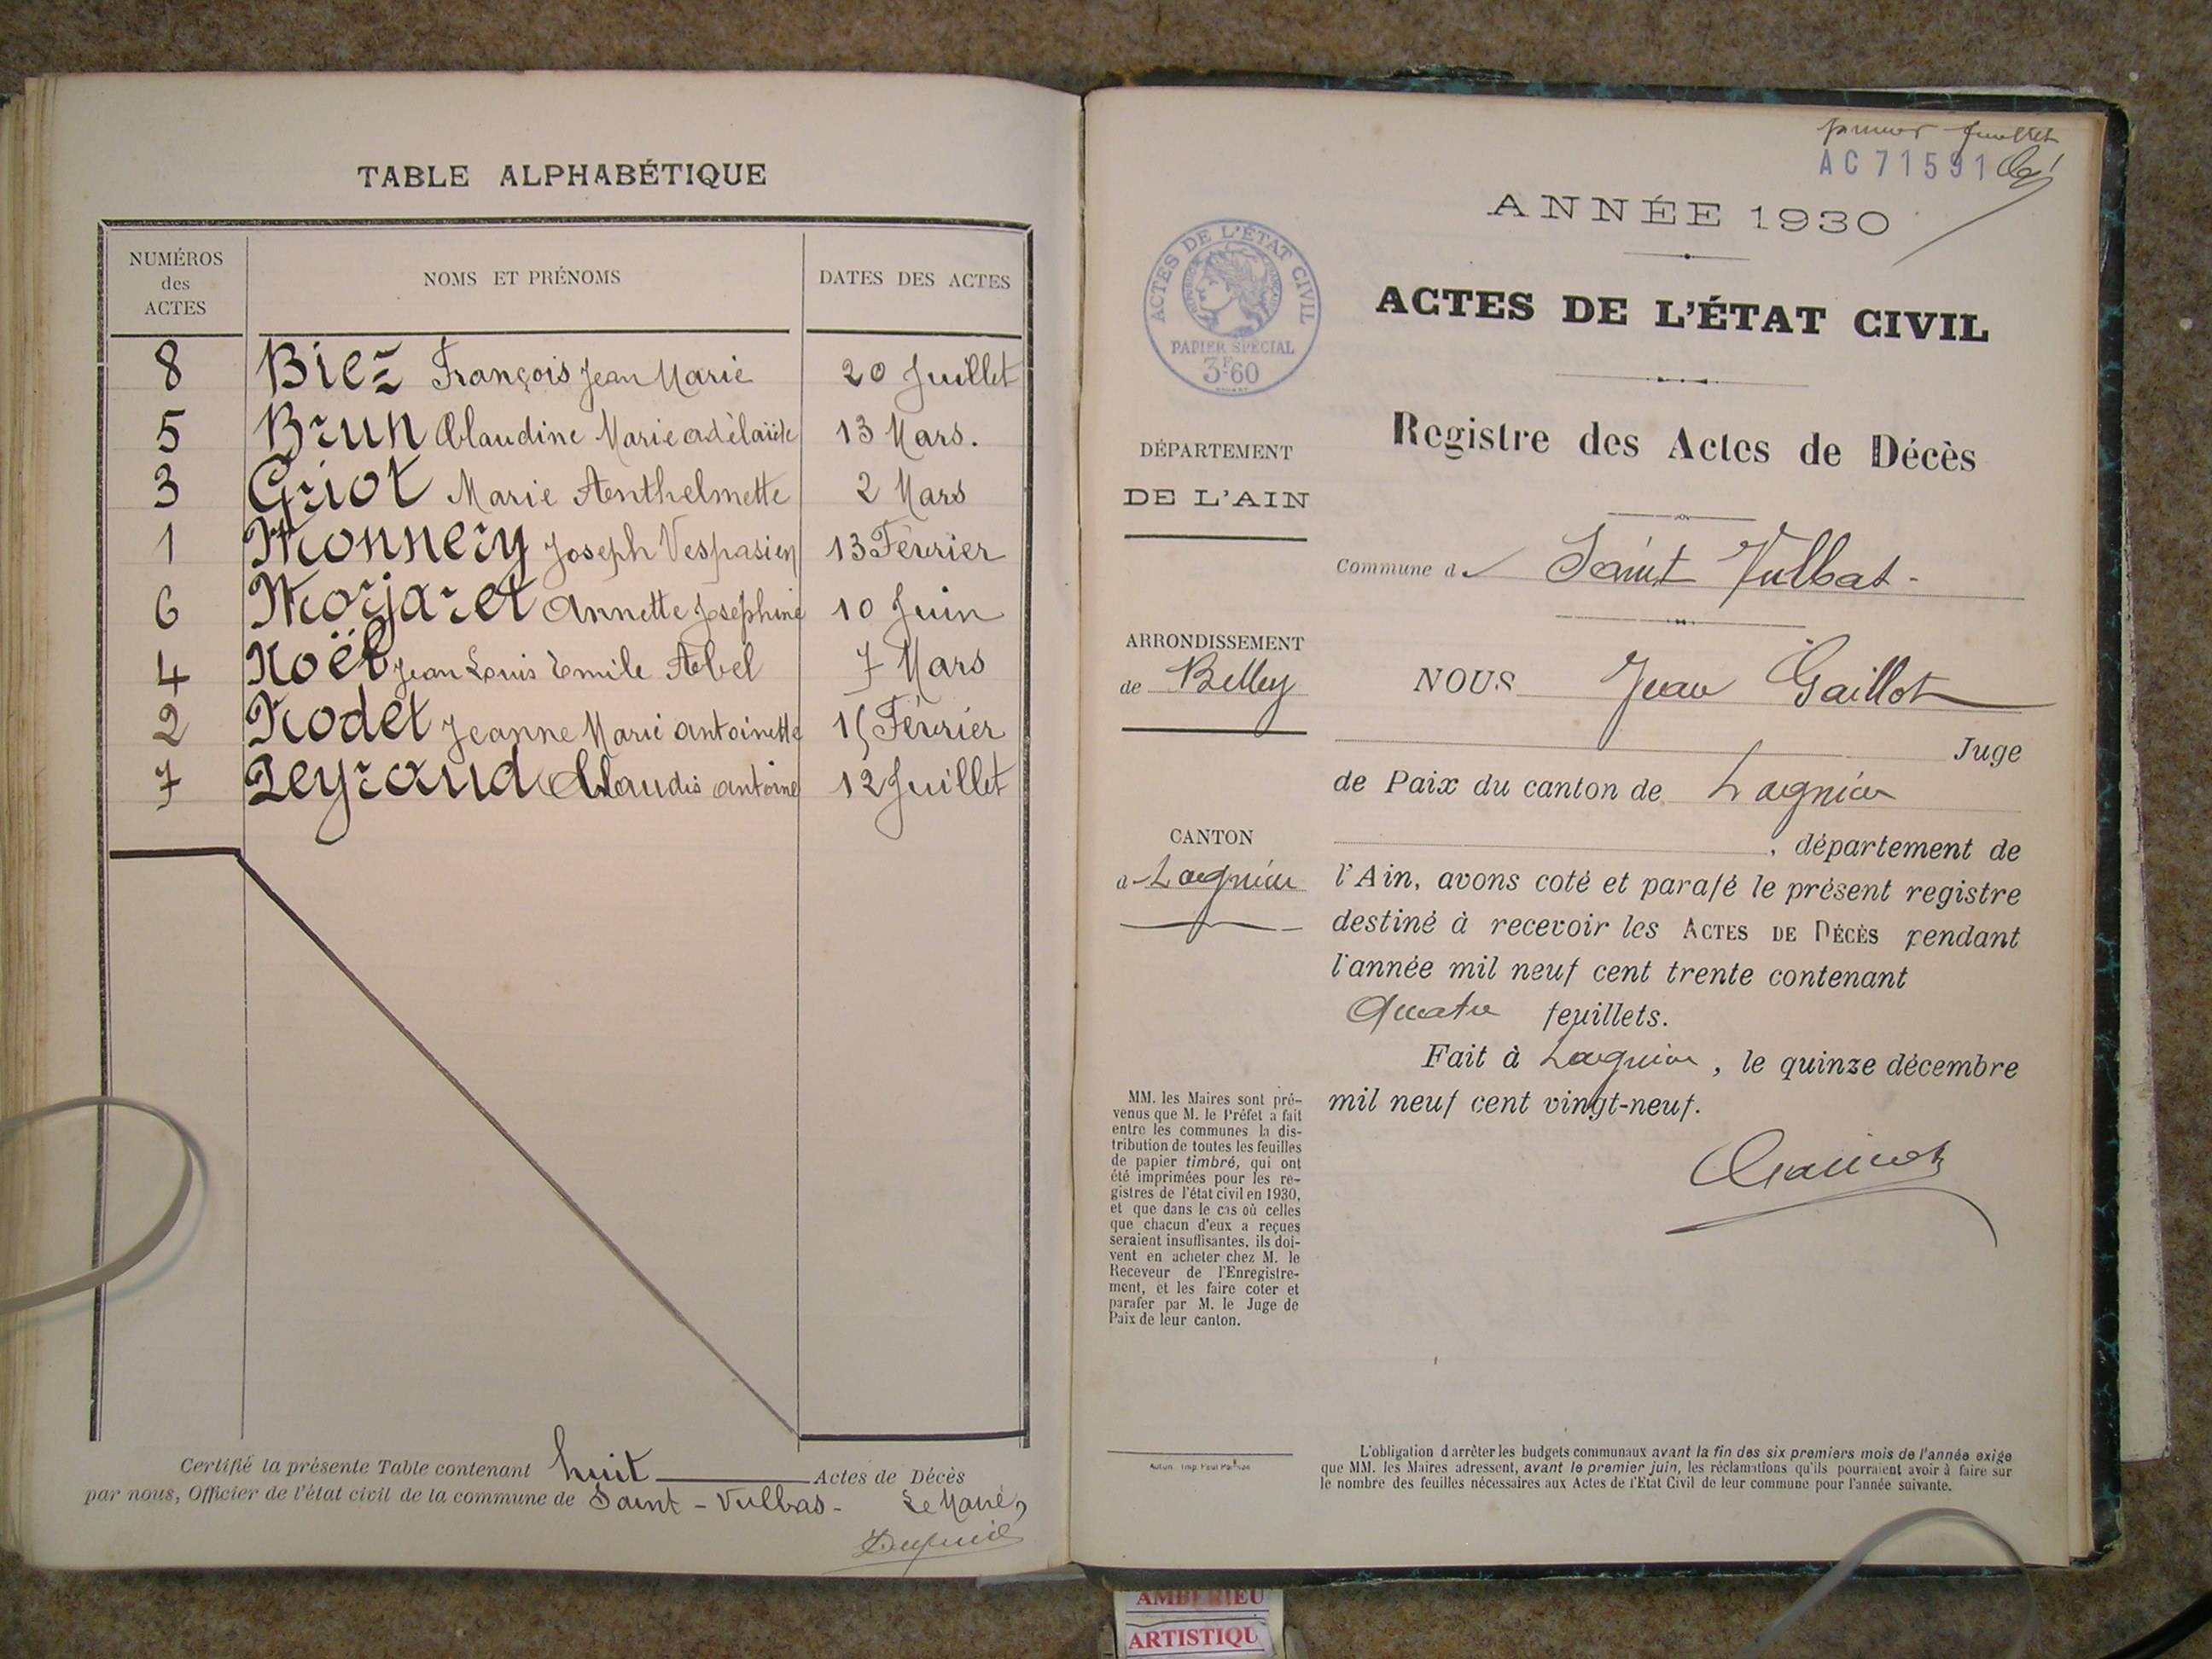 TABLE ALPHABÉTIQUE
NUMÉROS des ACTES
NOMS ET PRÉNOMS
DATES DES ACTES
8 Biez François Jean Marie 20 Juillet
5 Brun Claudine Marie adélaïde 13 Mars.
3 Griot Marie Anthelmette 2 Mars
1 Monnery Joseph Vespasien 13 Février
6 Morjaret Annette Joséphine 10 Juin
4 Noël Jean Louis Emile Abel 7 Mars
2 Rodet Jeanne Marie antoinette 15 Février
7 Peyraud Claudis antoine 12 Juillet
Certifié la présente Table contenant huit Actes de Décès
par nous, Officier de l'état civil de la commune de Saint-Vulbas- Le Maire,
premier feuillet
AC 71591
ANNÉE 1930
ACTES DE L'ÉTAT CIVIL
PAPIER SPÉCIAL
3F60
ACTES DE L'ÉTAT CIVIL
Registre des Actes de Décès
DÉPARTEMENT
DE L'AIN
Commune de Saint Vulbas-
ARRONDISSEMENT
de Belley
NOUS Jean Gaillot
Juge
de Paix du canton de Lagnieu
, département de
CANTON
d Lagnieu
l'Ain, avons coté et parafé le présent registre
destiné à recevoir les ACTES DE DÉCÈS pendant
l'année mil neuf cent trente contenant
Quatre feuillets.
Fait à Lagnieu, le quinze décembre
mil neuf cent vingt-neuf.
Gaillot
MM. les Maires sont pré-
venus que M. le Préfet a fait
entre les communes la dis-
tribution de toutes les feuilles
de papier timbré, qui ont
été imprimées pour les re-
gistres de l'état civil en 1930,
et que dans le cas où celles
que chacun d'eux a reçues
seraient insuffisantes, ils doi-
vent en acheter chez M. le
Receveur de l'Enregistre-
ment, et les faire coter et
parafer par M. le Juge de
Paix de leur canton.
L'obligation d'arrêter les budgets communaux avant la fin des six premiers mois de l'année exige
que MM. les Maires adressent, avant le premier juin, les réclamations qu'ils pourraient avoir à faire sur
le nombre des feuilles nécessaires aux Actes de l'Etat Civil de leur commune pour l'année suivante.
AMBERIEU
ARTISTIQU